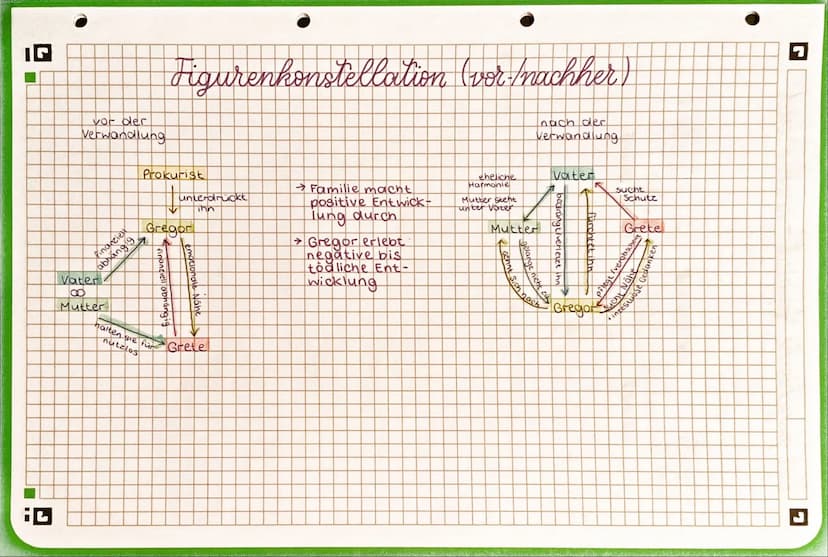 Figurenkonstellation (vor-/nachher)
vor der
Verwandlung
Prokurist
unterdrückt
ihn
Gregor
finanziell
abhängig
Vater
∞
Mutter
finanziell abhängig
emotionale Nähe
halten sie für
nutzlos
Grete
→ Familie macht
positive Entwick-
lung durch
→ Gregor erlebt
negative bis
tödliche Ent-
wicklung
nach der
Verwandlung
eheliche
Harmonie
Vater
sucht
Schutz
Mutter steht
unter Vater
Mutter
Grete
sehnt sich nach
fürchtet ihn
sucht Nähe
Gregor